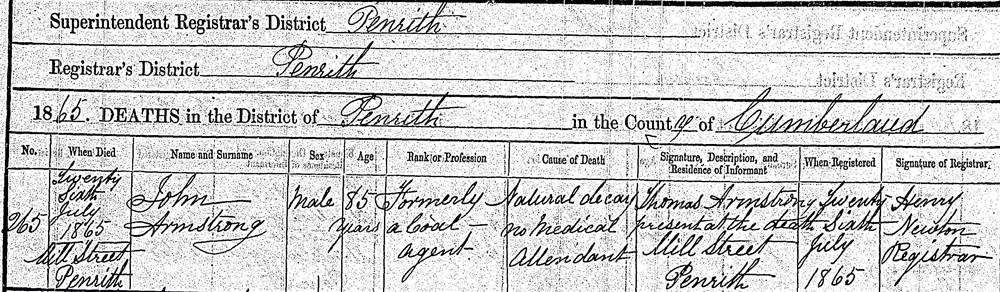 Superintendent Registrar's District Penrith
Registrar's District Penrith
1865. DEATHS in the District of Penrith in the County of Cumberland
No. When Died Name and Surname Sex Age Rank or Profession Cause of Death Signature, Description, and Residence of Informant When Registered Signature of Registrar
265
Twenty
Sixth
July
1865
Mill Street
Penrith
John
Armstrong
Male
85
years
Formerly
a Coal
agent
Natural decay
no Medical
Attendant
Thomas Armstrong
present at the death
Mill Street
Penrith
Twenty
Sixth
July
1865
Henry
Newton
Registrar